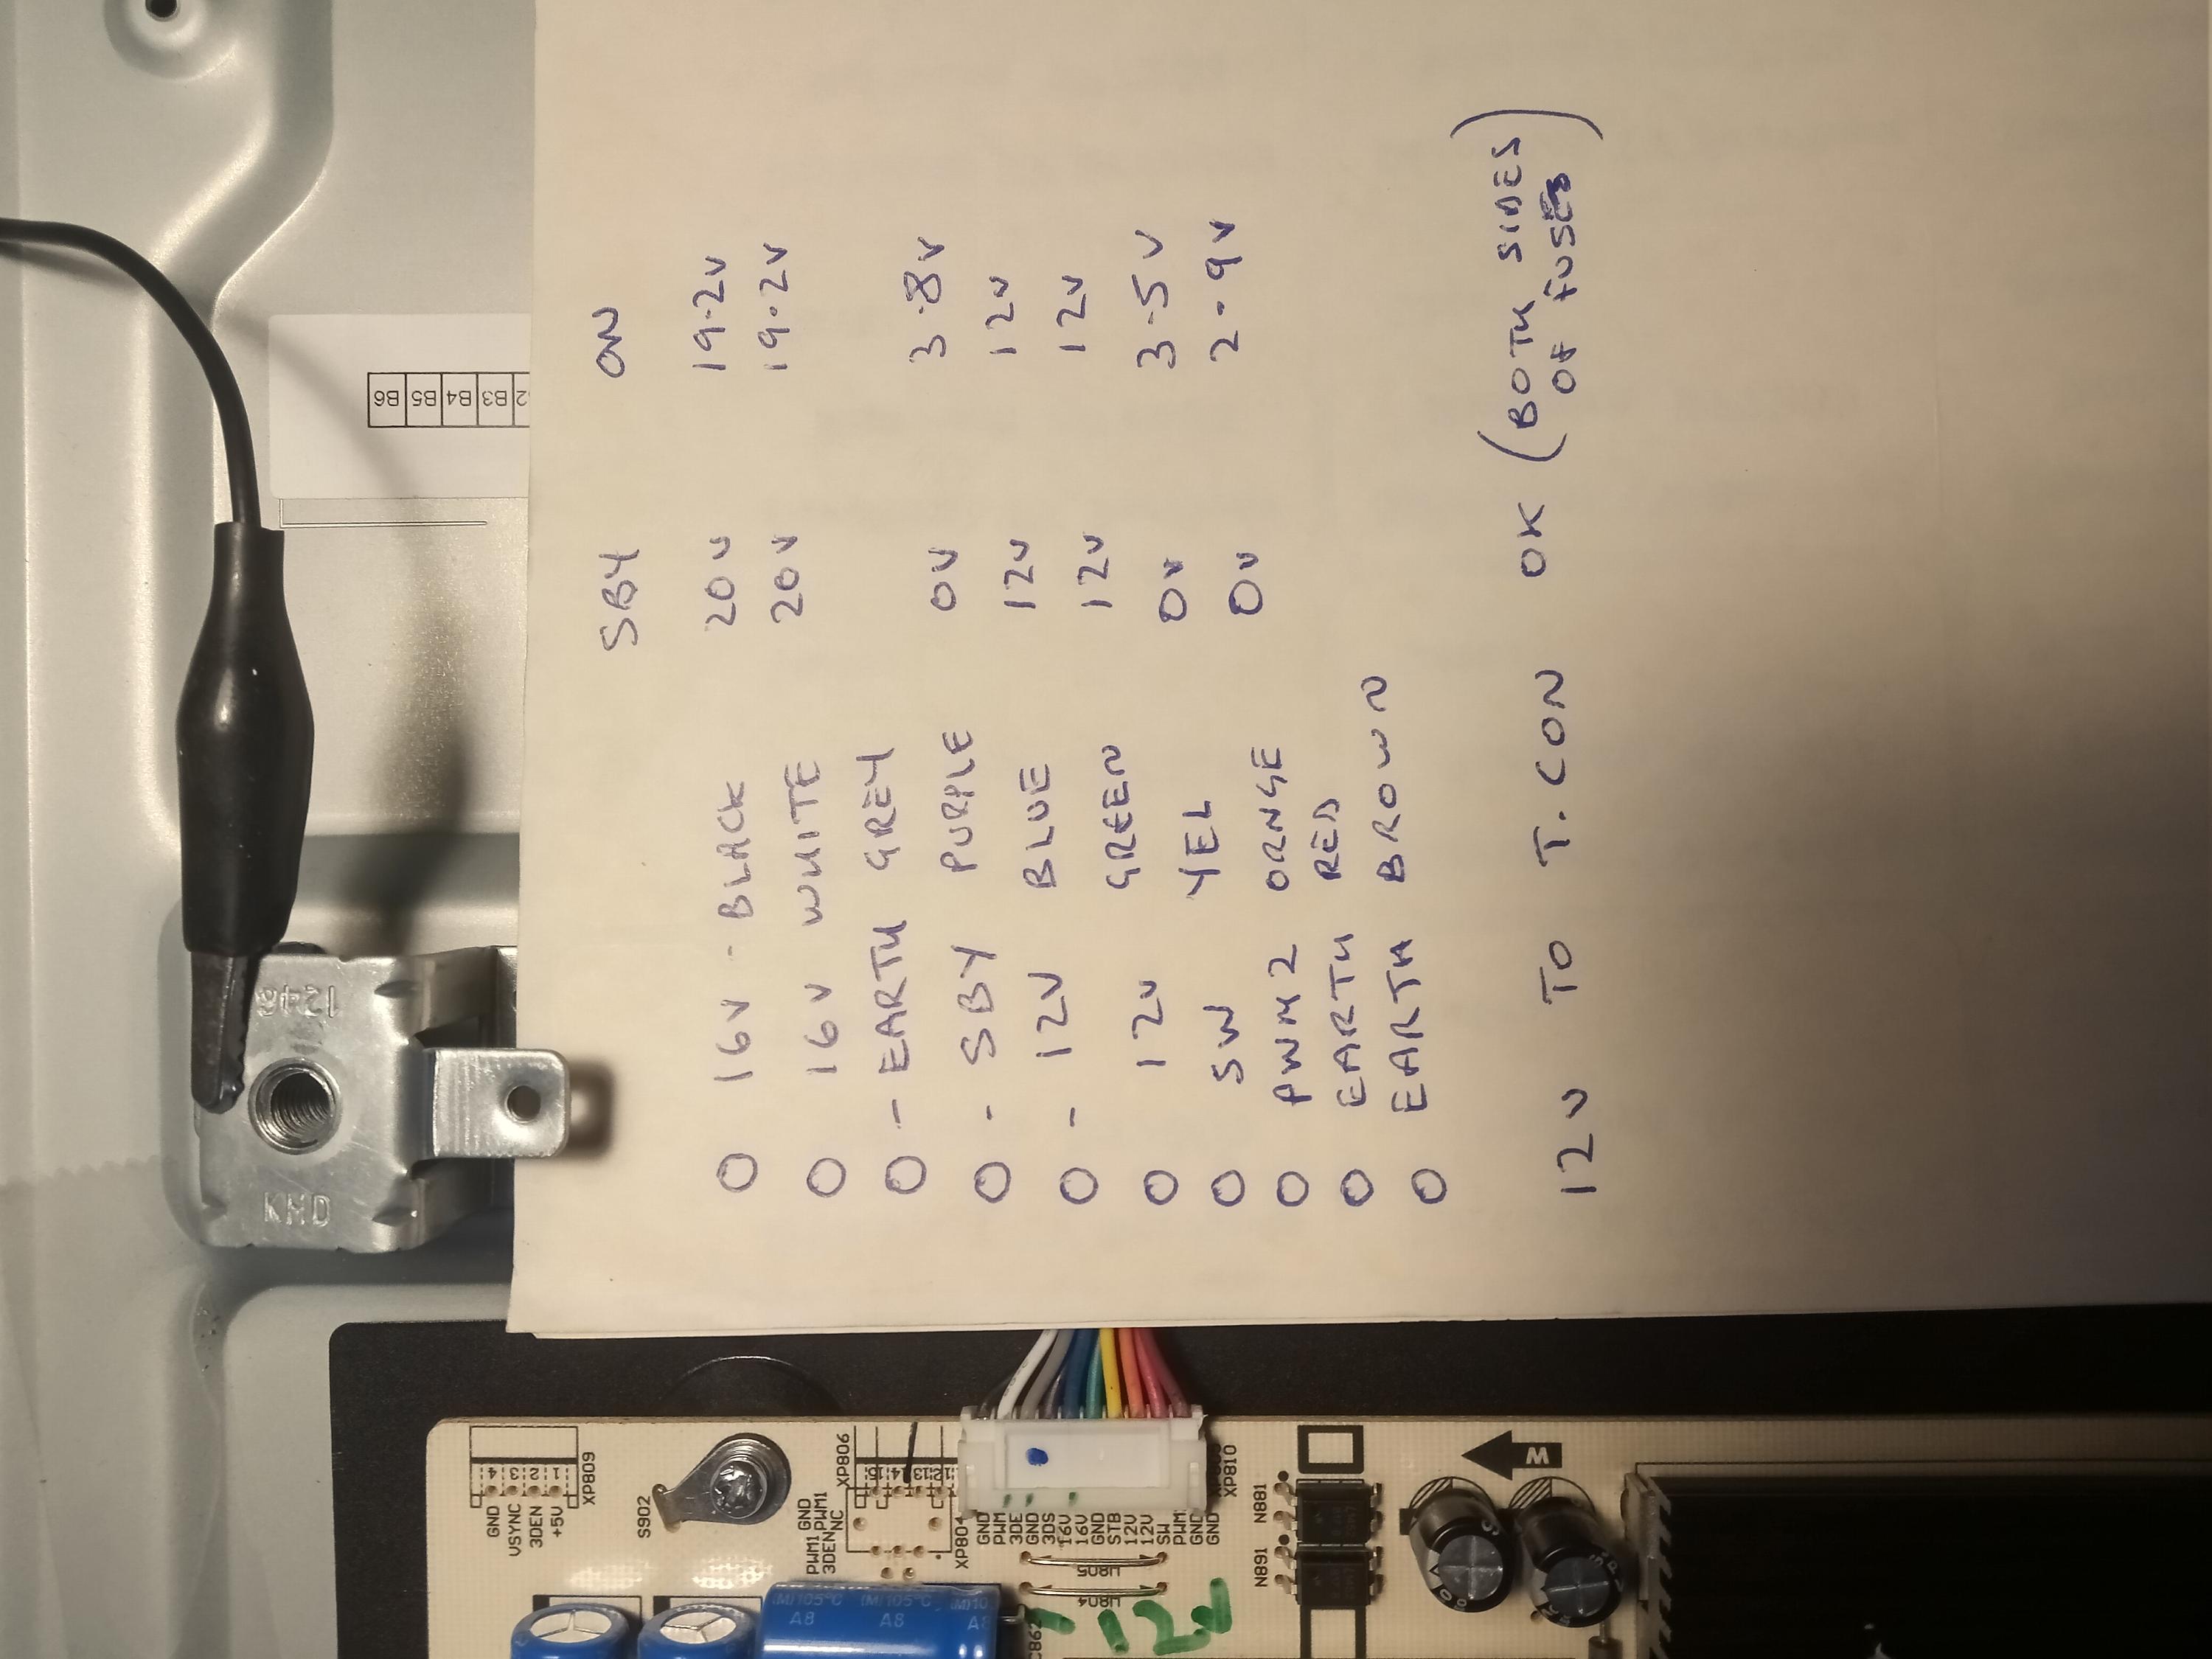 SBY ON
16V - BLACK 20V 19.2V
16V WHITE 20V 19.2V
- EARTH GREY
- SBY PURPLE 0V 3.8V
- 12V BLUE 12V 12V
12V GREEN 12V 12V
SW YEL 0V 3.5V
PWM2 ORNGE 0V 2.9V
EARTH RED
EARTH BROWN
12V TO T.CON OK (BOTH SIDES
OF FUSES)
B6 B5 B4 B3
1246
KMD
GND
VSYNC
3DEN
+5V
4
3
2
1
XP809
S902
XP806
PWM1 GND
3DEN PWM1
NC
15
14
13
12
XP804
GND
PWM
3DE
GND
3DS
16V
16V
GND
STB
12V
12V
SW
PWM
GND
GND
XP810
W805
W804
N881
N891
W
(M)105°C (M)105°C
A8 A8 A8
C862
-12V